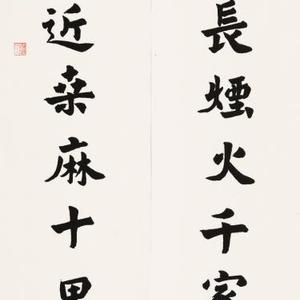 長煙火千家
近桒麻十里